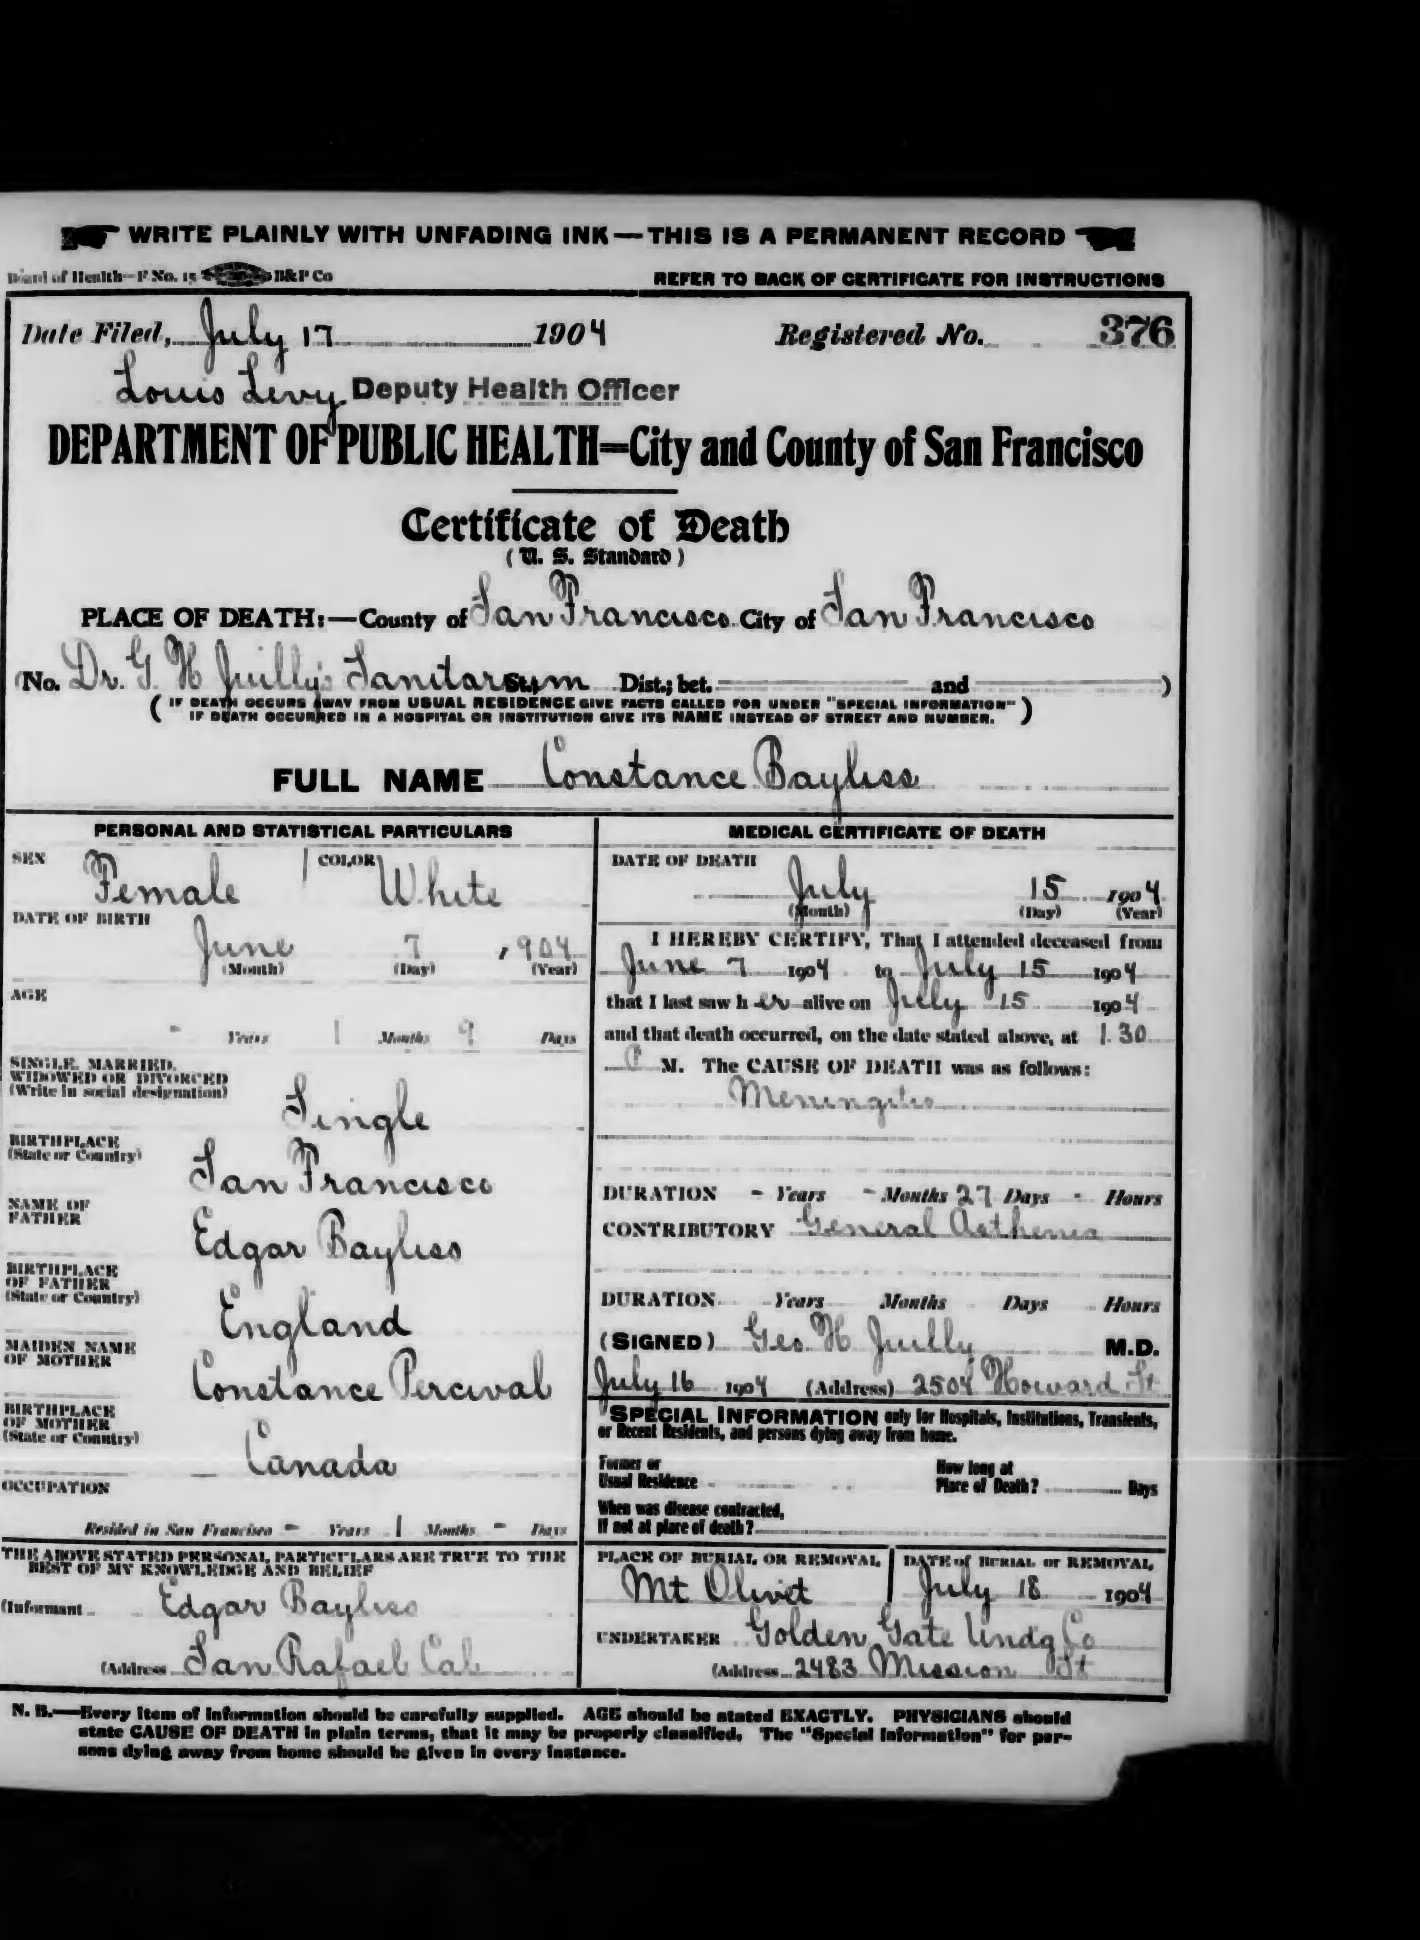 WRITE PLAINLY WITH UNFADING INK—THIS IS A PERMANENT RECORD
Board of Health—F No. 15 B&P Co
REFER TO BACK OF CERTIFICATE FOR INSTRUCTIONS
Date Filed, July 17 1904 Registered No. 376
Louis Levy Deputy Health Officer
DEPARTMENT OF PUBLIC HEALTH=City and County of San Francisco
Certificate of Death
(U. S. Standard)
PLACE OF DEATH:—County of San Francisco City of San Francisco
(No. Dr. G. H Juilly's Sanitarium St., Dist.; bet. and )
( IF DEATH OCCURS AWAY FROM USUAL RESIDENCE GIVE FACTS CALLED FOR UNDER "SPECIAL INFORMATION"
IF DEATH OCCURRED IN A HOSPITAL OR INSTITUTION GIVE ITS NAME INSTEAD OF STREET AND NUMBER. )
FULL NAME Constance Bayliss
PERSONAL AND STATISTICAL PARTICULARS
SEX Female COLOR White
DATE OF BIRTH
June 7, 1904
(Month) (Day) (Year)
AGE
- Years 1 Months 9 Days
SINGLE, MARRIED,
WIDOWED OR DIVORCED
(Write in social designation)
Single
BIRTHPLACE
(State or Country)
San Francisco
NAME OF
FATHER
Edgar Bayliss
BIRTHPLACE
OF FATHER
(State or Country)
England
MAIDEN NAME
OF MOTHER
Constance Percival
BIRTHPLACE
OF MOTHER
(State or Country)
Canada
OCCUPATION
Resided in San Francisco - Years 1 Months - Days
THE ABOVE STATED PERSONAL PARTICULARS ARE TRUE TO THE
BEST OF MY KNOWLEDGE AND BELIEF
(Informant Edgar Bayliss
(Address San Rafael Cal
MEDICAL CERTIFICATE OF DEATH
DATE OF DEATH
July 15 1904
(Month) (Day) (Year)
I HEREBY CERTIFY, That I attended deceased from
June 7 1904 to July 15 1904
that I last saw her alive on July 15 1904
and that death occurred, on the date stated above, at 1.30
P M. The CAUSE OF DEATH was as follows:
Meningitis
DURATION - Years - Months 27 Days - Hours
CONTRIBUTORY General Asthenia
DURATION Years Months Days Hours
(SIGNED) Geo. H Juilly M.D.
July 16 1904 (Address) 2504 Howard St
SPECIAL INFORMATION only for Hospitals, Institutions, Transients,
or Recent Residents, and persons dying away from home.
Former or
Usual Residence
How long at
Place of Death? Days
When was disease contracted,
If not at place of death?
PLACE OF BURIAL OR REMOVAL
Mt Olivet
DATE of BURIAL or REMOVAL
July 18 1904
UNDERTAKER Golden Gate Undg Co
(Address 2483 Mission St
N. B.—Every item of information should be carefully supplied. AGE should be stated EXACTLY. PHYSICIANS should
state CAUSE OF DEATH in plain terms, that it may be properly classified. The "Special Information" for per-
sons dying away from home should be given in every instance.